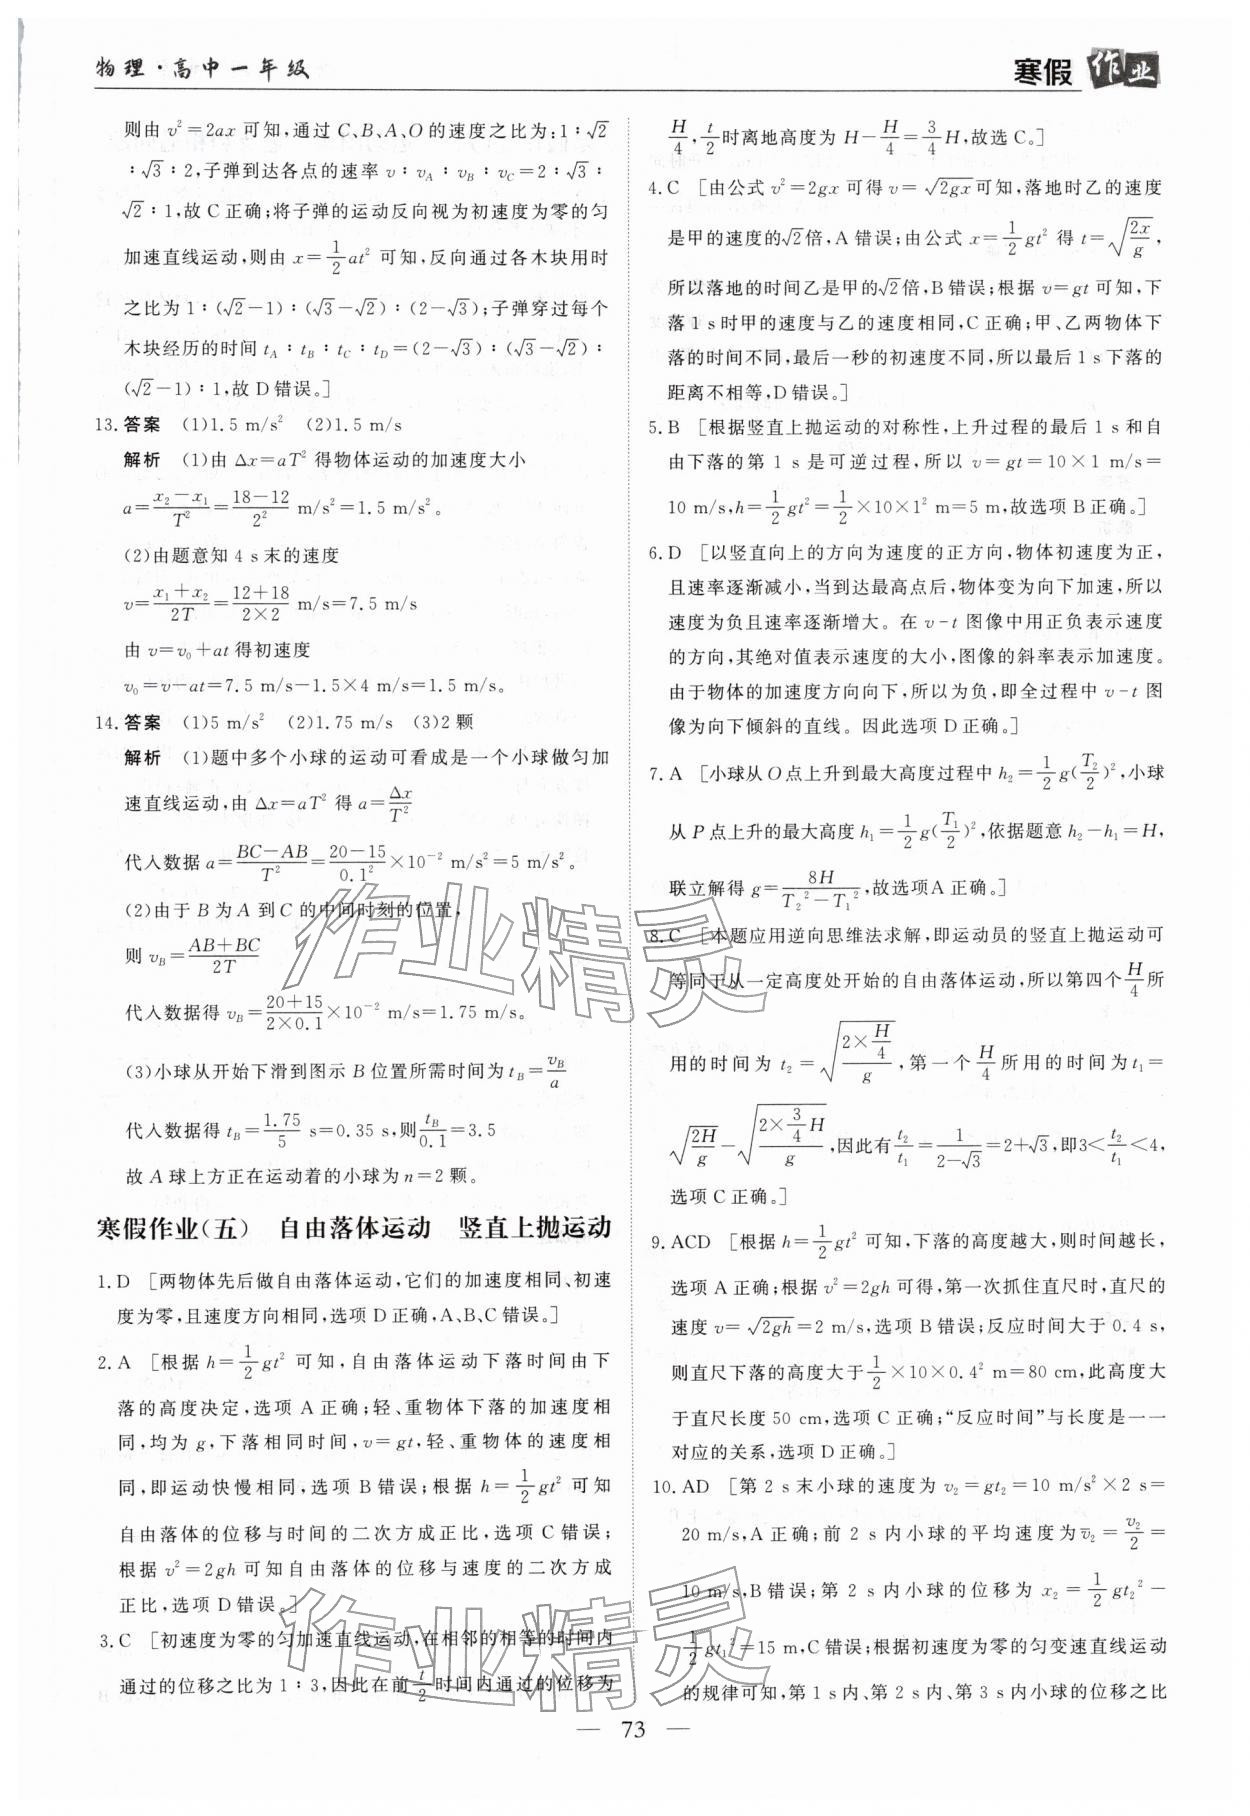 物理·高中一年级
寒假作业
则由 v²=2ax 可知,通过 C、B、A、O 的速度之比为:1∶√2
∶√3∶2,子弹到达各点的速率 v∶v_A∶v_B∶v_C=2∶√3∶
√2∶1,故 C 正确;将子弹的运动反向视为初速度为零的匀
加速直线运动,则由 x=1/2 at² 可知,反向通过各木块用时
之比为 1∶(√2-1)∶(√3-√2)∶(2-√3);子弹穿过每个
木块经历的时间 t_A∶t_B∶t_C∶t_D=(2-√3)∶(√3-√2)∶
(√2-1)∶1,故 D 错误。]
13.答案 (1)1.5 m/s² (2)1.5 m/s
解析 (1)由 Δx=aT² 得物体运动的加速度大小
a=(x₂-x₁)/T²=(18-12)/2² m/s²=1.5 m/s²。
(2)由题意知 4 s 末的速度
v=(x₁+x₂)/2T=(12+18)/(2×2) m/s=7.5 m/s
由 v=v₀+at 得初速度
v₀=v-at=7.5 m/s-1.5×4 m/s=1.5 m/s。
14.答案 (1)5 m/s² (2)1.75 m/s (3)2颗
解析 (1)题中多个小球的运动可看成是一个小球做匀加
速直线运动,由 Δx=aT² 得 a=Δx/T²
代入数据 a=(BC-AB)/T²=(20-15)/0.1²×10⁻² m/s²=5 m/s²。
(2)由于 B 为 A 到 C 的中间时刻的位置,
则 v_B=(AB+BC)/2T
代入数据得 v_B=(20+15)/(2×0.1)×10⁻² m/s=1.75 m/s。
(3)小球从开始下滑到图示 B 位置所需时间为 t_B=v_B/a
代入数据得 t_B=1.75/5 s=0.35 s,则t_B/0.1=3.5
故 A 球上方正在运动着的小球为 n=2 颗。
寒假作业(五) 自由落体运动 竖直上抛运动
1.D [两物体先后做自由落体运动,它们的加速度相同、初速
度为零,且速度方向相同,选项 D 正确,A、B、C 错误。]
2.A [根据 h=1/2 gt² 可知,自由落体运动下落时间由下
落的高度决定,选项 A 正确;轻、重物体下落的加速度相
同,均为 g,下落相同时间,v=gt,轻、重物体的速度相
同,即运动快慢相同,选项 B 错误;根据 h=1/2 gt² 可知
自由落体的位移与时间的二次方成正比,选项 C 错误;
根据 v²=2gh 可知自由落体的位移与速度的二次方成
正比,选项 D 错误。]
3.C [初速度为零的匀加速直线运动,在相邻的相等的时间内
通过的位移之比为 1∶3,因此在前 t/2 时间内通过的位移为
H/4,t/2时离地高度为 H-H/4=3/4 H,故选 C。]
4.C [由公式 v²=2gx 可得 v=√(2gx)可知,落地时乙的速度
是甲的速度的√2倍,A 错误;由公式 x=1/2 gt² 得 t=√(2x/g),
所以落地的时间乙是甲的√2倍,B 错误;根据 v=gt 可知,下
落 1 s 时甲的速度与乙的速度相同,C 正确;甲、乙两物体下
落的时间不同,最后一秒的初速度不同,所以最后 1 s 下落的
距离不相等,D 错误。]
5.B [根据竖直上抛运动的对称性,上升过程的最后 1 s 和自
由下落的第 1 s 是可逆过程,所以 v=gt=10×1 m/s=
10 m/s,h=1/2 gt²=1/2×10×1² m=5 m,故选项 B 正确。]
6.D [以竖直向上的方向为速度的正方向,物体初速度为正,
且速率逐渐减小,当到达最高点后,物体变为向下加速,所以
速度为负且速率逐渐增大。在 v-t 图像中用正负表示速度
的方向,其绝对值表示速度的大小,图像的斜率表示加速度。
由于物体的加速度方向向下,所以为负,即全过程中 v-t 图
像为向下倾斜的直线。因此选项 D 正确。]
7.A [小球从 O 点上升到最大高度过程中 h₂=1/2 g(T₂/2)²,小球
从 P 点上升的最大高度 h₁=1/2 g(T₁/2)²,依据题意 h₂-h₁=H,
联立解得 g=8H/(T₂²-T₁²),故选项A 正确。]
8.C [本题应用逆向思维法求解,即运动员的竖直上抛运动可
等同于从一定高度处开始的自由落体运动,所以第四个 H/4 所
用的时间为 t₂=√((2×H/4)/g),第一个 H/4 所用的时间为 t₁=
√(2H/g)-√((2×3/4 H)/g),因此有 t₂/t₁=1/(2-√3)=2+√3,即3<t₂/t₁<4,
选项 C 正确。]
9.ACD [根据 h=1/2 gt² 可知,下落的高度越大,则时间越长,
选项 A 正确;根据 v²=2gh 可得,第一次抓住直尺时,直尺的
速度 v=√(2gh)=2 m/s,选项 B 错误;反应时间大于 0.4 s,
则直尺下落的高度大于1/2×10×0.4² m=80 cm,此高度大
于直尺长度 50 cm,选项 C 正确;“反应时间”与长度是一一
对应的关系,选项 D 正确。]
10.AD [第 2 s 末小球的速度为 v₂=gt₂=10 m/s²×2 s=
20 m/s,A 正确;前 2 s 内小球的平均速度为v̄₂=v₂/2=
10 m/s,B 错误;第 2 s 内小球的位移为 x₂=1/2 gt₂²-
1/2 gt₁²=15 m,C 错误;根据初速度为零的匀变速直线运动
的规律可知,第 1 s 内、第 2 s 内、第 3 s 内小球的位移之比
— 73 —
作业精灵
作业精灵